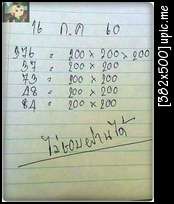 16 ก.ค 60
376 = 200 × 200 × 200
37 = 200 × 200
73 = 200 × 200
48 = 200 × 200
84 = 200 × 200
[382x500] upic.me